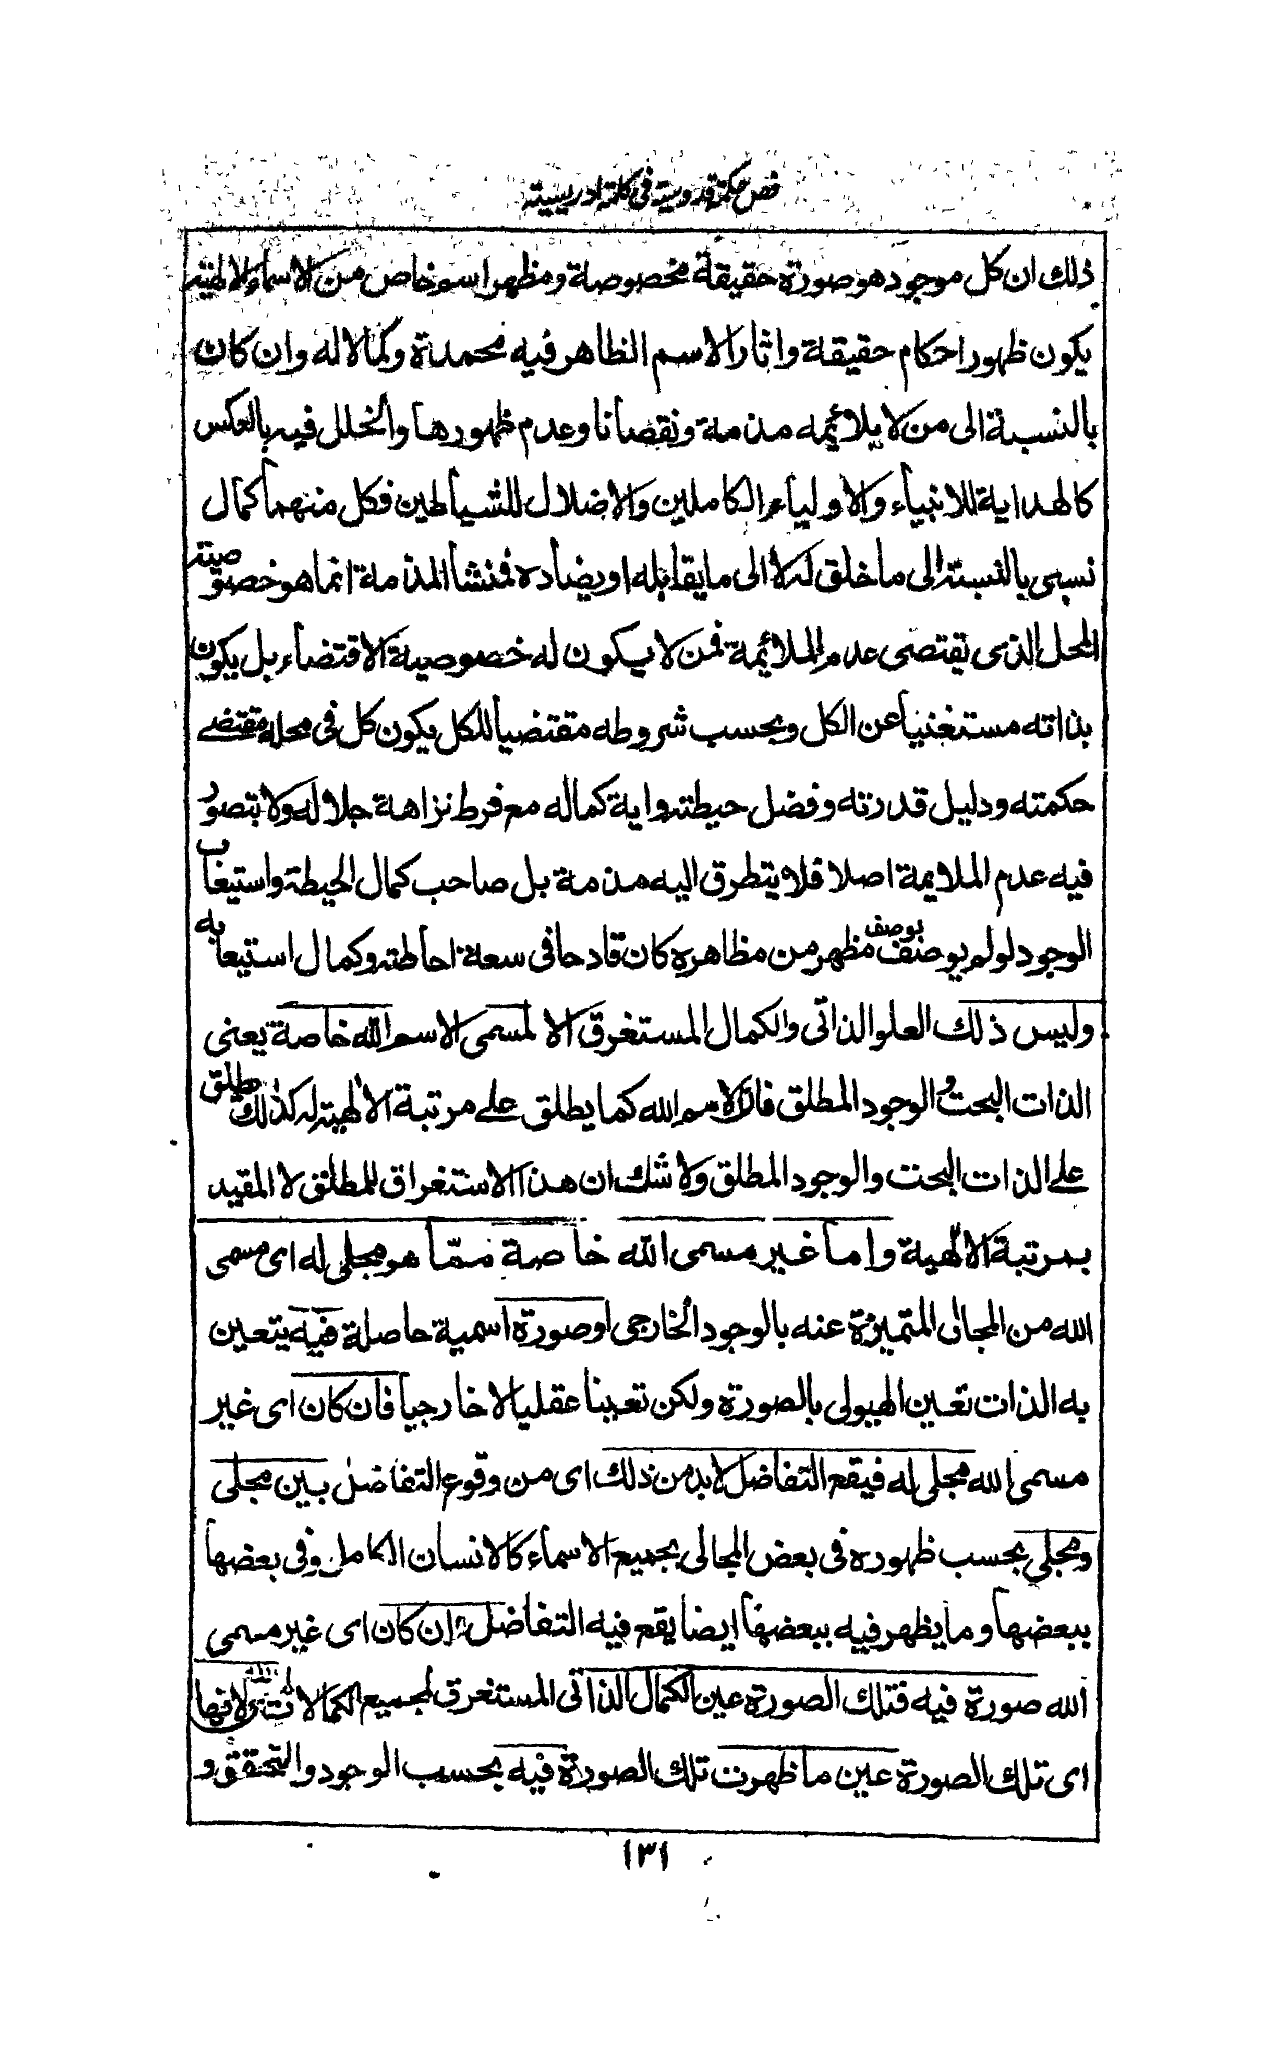 فص حكمة قدوسية في كلمة ادريسية
ذلك ان كل موجود هو صورة حقيقة مخصوصة ومظهر اسم خاص من الاسماء الالهية
يكون ظهور احكام حقيقة واثار الاسم الظاهر فيه محمدة وكمالا له وان كان
بالنسبة الى من لا يلائمه مذمة ونقصانا وعدم ظهورها والخلل فيه بالعكس
كالهداية للانبياء والاولياء الكاملين والاضلال للشياطين فكل منهما كمال
نسبي بالنسبة الى ما خلق له لا الى ما يقابله او يضاده فمنشأ المذمة انما هو خصوصية
المحل الذى يقتضى عدم الملائمة فمن لا يكون له خصوصية الاقتضاء بل يكون
بذاته مستغنيا عن الكل وبحسب شروطه مقتضيا للكل يكون كل في محله مقتضے
حكمته ودليل قدرته وفضل حيطته واية كماله مع فرط نزاهة جلاله ولا يتصور
فيه عدم الملايمة اصلا فلا يتطرق اليه مذمة بل صاحب كمال الحيطة واستيعاب
الوجود لو لم يوصف بوصف مظهر من مظاهره كان قادحا في سعة احاطته وكمال استيعابه
وليس ذلك العلو الذاتي والكمال المستغرق الا لمسمى الاسم الله خاصة يعنى
الذات البحت والوجود المطلق فان الاسم الله كما يطلق علے مرتبة الالهية له كذلك يطلق
علے الذات البحت والوجود المطلق ولا شك ان هذا الاستغراق للمطلق لا المقيد
بمرتبة الالهية واما غير مسمى الله خاصة ممّا هو مجلى له اى مسمى
الله من المجالى المتميزة عنه بالوجود الخارجى او صورة اسمية حاصلة فيه يتعين
به الذات تعين الهيولى بالصورة ولكن تعينا عقليا لا خارجيا فان كان اى غير
مسمى الله مجلى له فيقع التفاضل لابد من ذلك اى من وقوع التفاضل بين مجلى
ومجلى بحسب ظهوره في بعض المجالى بجميع الاسماء كالانسان الكامل وفى بعضها
ببعضها وما يظهر فيه ببعضها ايضا يقع فيه التفاضل وان كان اى غير مسمى
الله صورة فيه فتلك الصورة عين الكمال الذاتى المستغرق لجميع الكمالات لانها
اى تلك الصورة عين ما ظهرت تلك الصورة فيه بحسب الوجود والتحقق و
١٣١